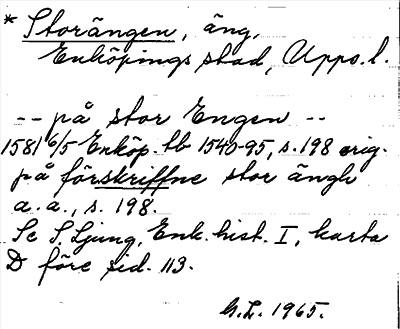 * Storängen, äng,
Enköpings stad, Upps. l.
-- på stor Engen --
1581 6/5 Enköp. tb 1540-95, s. 198 orig.
på förskriffne stor ängh
a. a., s. 198.
Se S. Ljung, Enk. hist. I, karta
D före sid. 113.
G. L. 1965.